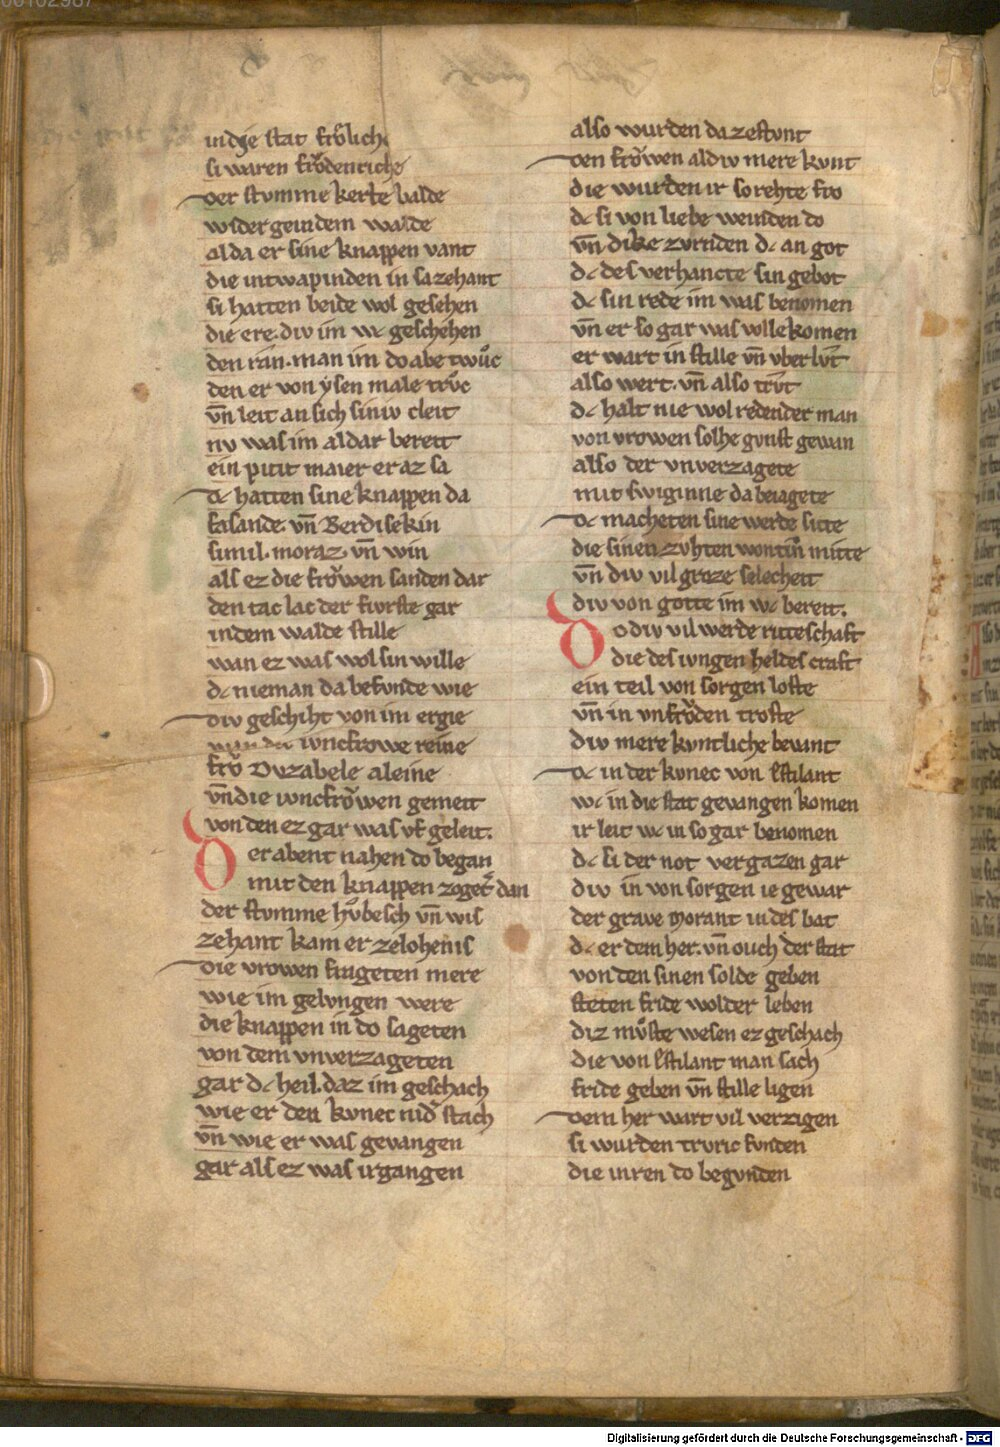 in die stat frölich
si waren frödenriche
der stumme kerte balde
wider gein dem walde
alda er sine knappen vant
die intwapinden in sazehant
si hatten beide wol gesehen
die ere. div im wc geschehen
den ran. man im do abe twůc
den er von ysen male trůc
vn̄ leit an sich siniv cleit
nv was im aldar bereit
ein pitit maier er az sa
dc hatten sine knappen da
fasande vn̄ Berdisekin
simil. moraz. vn̄ win
als ez die frŏwen sanden dar
den tac lac der fivrste gar
in dem walde stille
wan ez was wol sin wille
dc nieman da befvnde wie
div geschiht von im ergie
wan div ivncfrowe reine
frŏ Dvzabele aleine
vn̄ die ivncfrŏwen gemeit
von den ez gar was vf geleit.
Der abent nahen do began
mit den knappen zoget̓ dan
der stvmme hv̊besch vn̄ wis
zehant kam er zelohenis
die vrowen frageten mere
wie im gelvngen were
die knappen in do sageten
von dem vnverzageten
gar dc heil. daz im geschach
wie er den kvnec nid̓ stach
vn̄ wie er was gevangen
gar als ez was irgangen
also wurden da zestvnt
den frŏwen al div mere kvnt
die wurden ir so rehte fro
dc si von liebe weinden do
vn̄ dike zvrnden dc an got
dc des verhancte sin gebot
dc sin rede im was benomen
vn̄ er so gar was vollekomen
er wart in stille vn̄ vber lv̂t
also wert. vn̄ also trv̂t
dc halt nie wol redender man
von vrowen solhe gvnst gewan
also der vnverzagete
mit swiginne da beiagete
dc macheten sine werde sitte
die sinen zvhten wontin mitte
vn̄ div vil groze selecheit
div von gotte im wc bereit.
Do div vil werde ritteschaft
die des ivngen heldes craft
ein teil von sorgen loste
vn̄ in vnfrŏden troste
div mere kvntliche bevant
dc in der kvnec von Estilant
wc in die stat gevangen komen
ir leit wc in so gar benomen
dc si der not vergazen gar
div in von sorgen ie gewar
der grave Morant in des bat
dc er dem her. vn̄ ouch der stat
von den sinen solde geben
steten fride wolder leben
diz mv̊ste wesen ez geschach
die von Estilant man sach
fride geben vn̄ stille ligen
dem her wart vil verzigen
si wurden trvric fvnden
die inren do begvnden
Digitalisierung gefördert durch die Deutsche Forschungsgemeinschaft - DFG